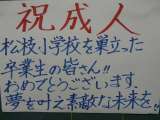 祝成人
松枝小学校を巣立った
卒業生の皆さん!!
おめでとうございます.
夢を叶え素敵な未来を!!